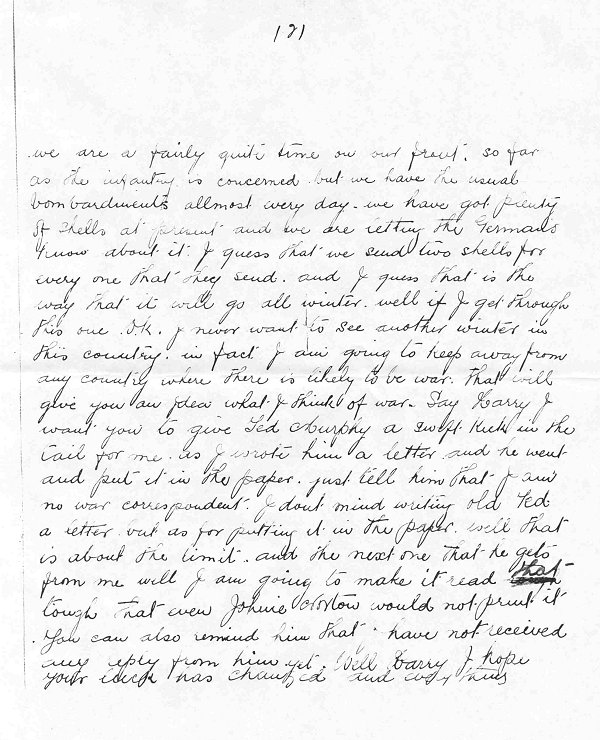 121
we are a fairly quite time on our front. so far
as the infantry is concerned but we have the usual
bombardments allmost every day. we have got plenty
of shells at present and we are letting the Germans
know about it. I guess that we send two shells for
every one that they send. and I guess that is the
way that it will go all winter. well if I get through
this one O.K. I never want to see another winter in
this country. in fact I am going to keep away from
any country where there is likely to be war. that will
give you an idea what I think of war. Say Harry I
want you to give Ted Murphy a swift kick in the
tail for me. as I wrote him a letter and he went
and put it in the paper. just tell him that I am
no war correspondent. I dont mind writing old Ted
a letter but as for putting it in the paper. well that
is about the limit. and the next one that he gets
from me will I am going to make it read that
tough that even Johnie Norton would not print it
You can also remind him that have not received
any reply from him yet. Well Harry I hope
your luck has changed and